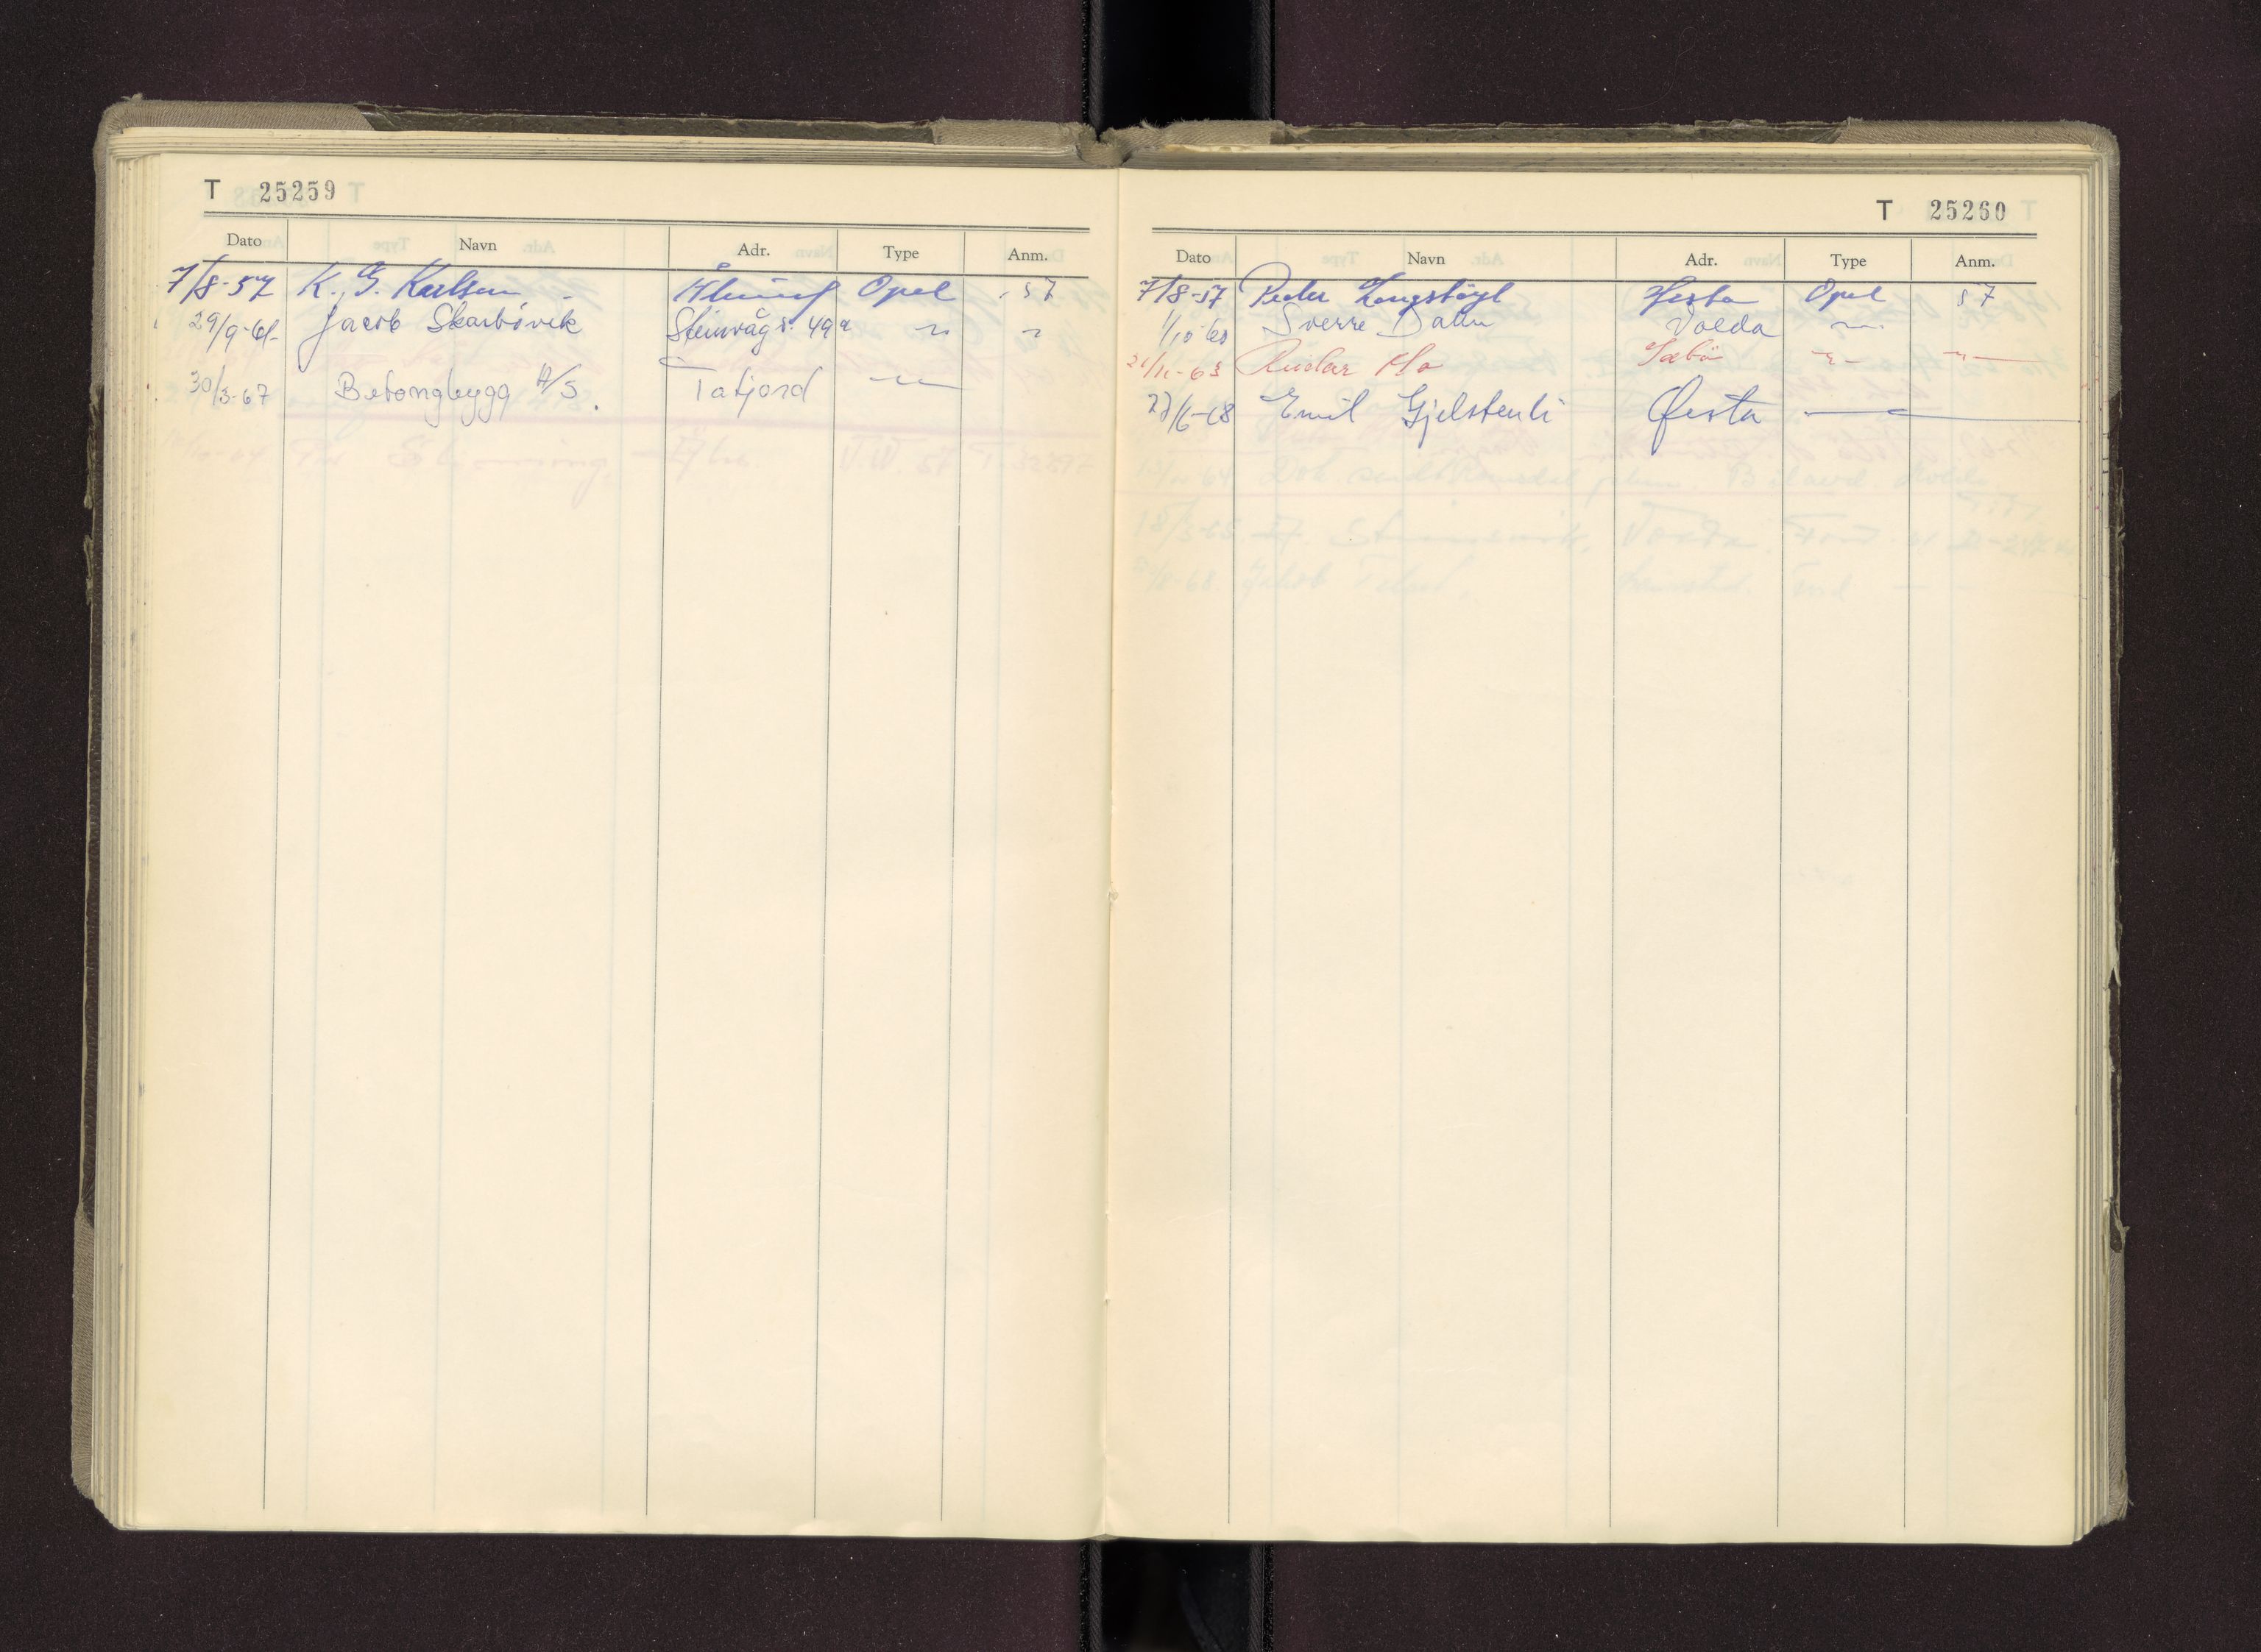 T 25259
Dato Navn Adr. Type Anm.
7/8-57 K. G. Karlsen Opel 57
29/9-61 Jacob Skarbövik Steinvåg s. 49a
30/3-67 Betongbygg A/S. Tafjord
T 25260
Dato Navn Adr. Type Anm.
7/8-57 Peder Opel 57
1/10-60 Sverre Volda
/11-63 Reidar Mo Sæbö
27/6-68 Emil Gjelstenli Ørsta